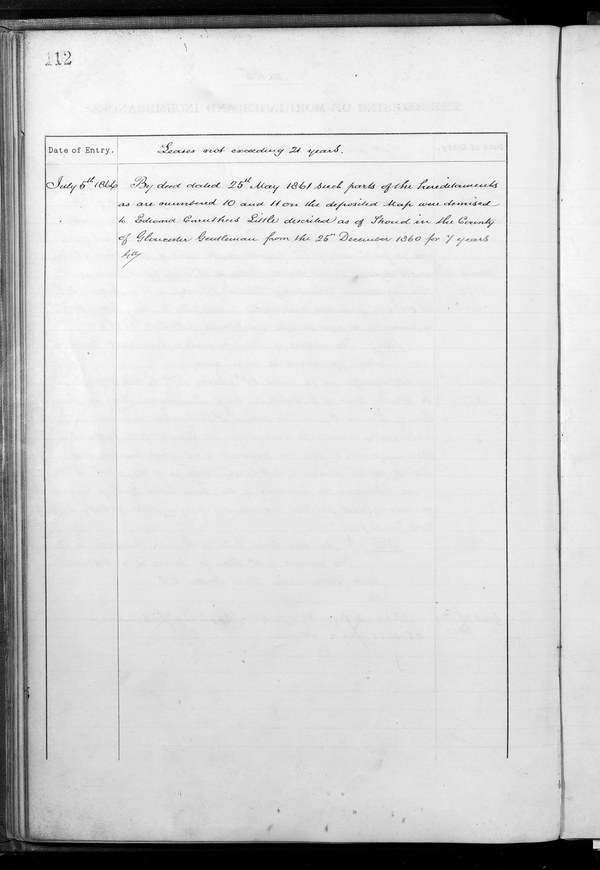 112
Date of Entry.
Leases not exceeding 21 years.
July 5th 1864
By deed dated 25th May 1861 such parts of the hereditaments
as are numbered 10 and 11 on the deposited Map were demised
to Edward Carruthers Little described as of Stroud in the County
of Gloucester Gentleman from the 25th December 1860 for 7 years